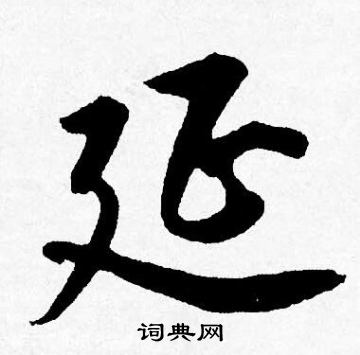 延
词典网